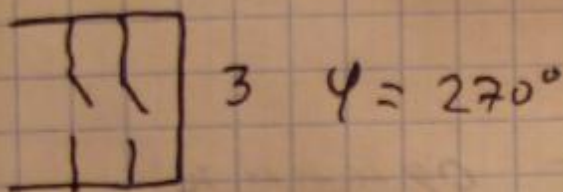 3 φ = 270°